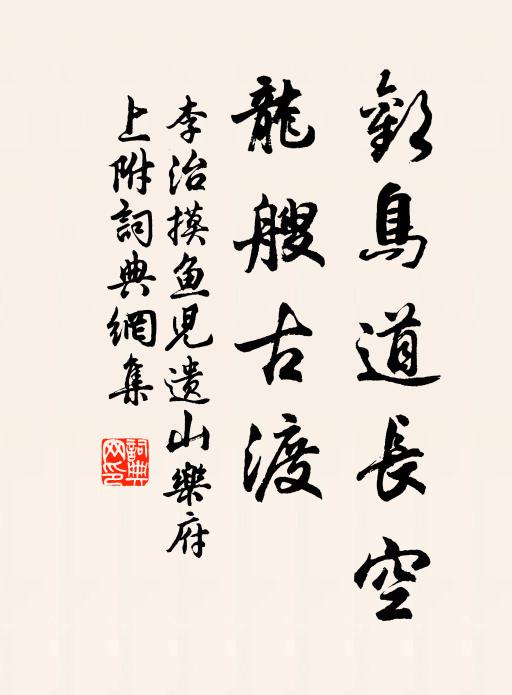 歎鳥道長空
龍艘古渡
李治摸鱼児遺山樂府
上附詞典網集
詞典网印